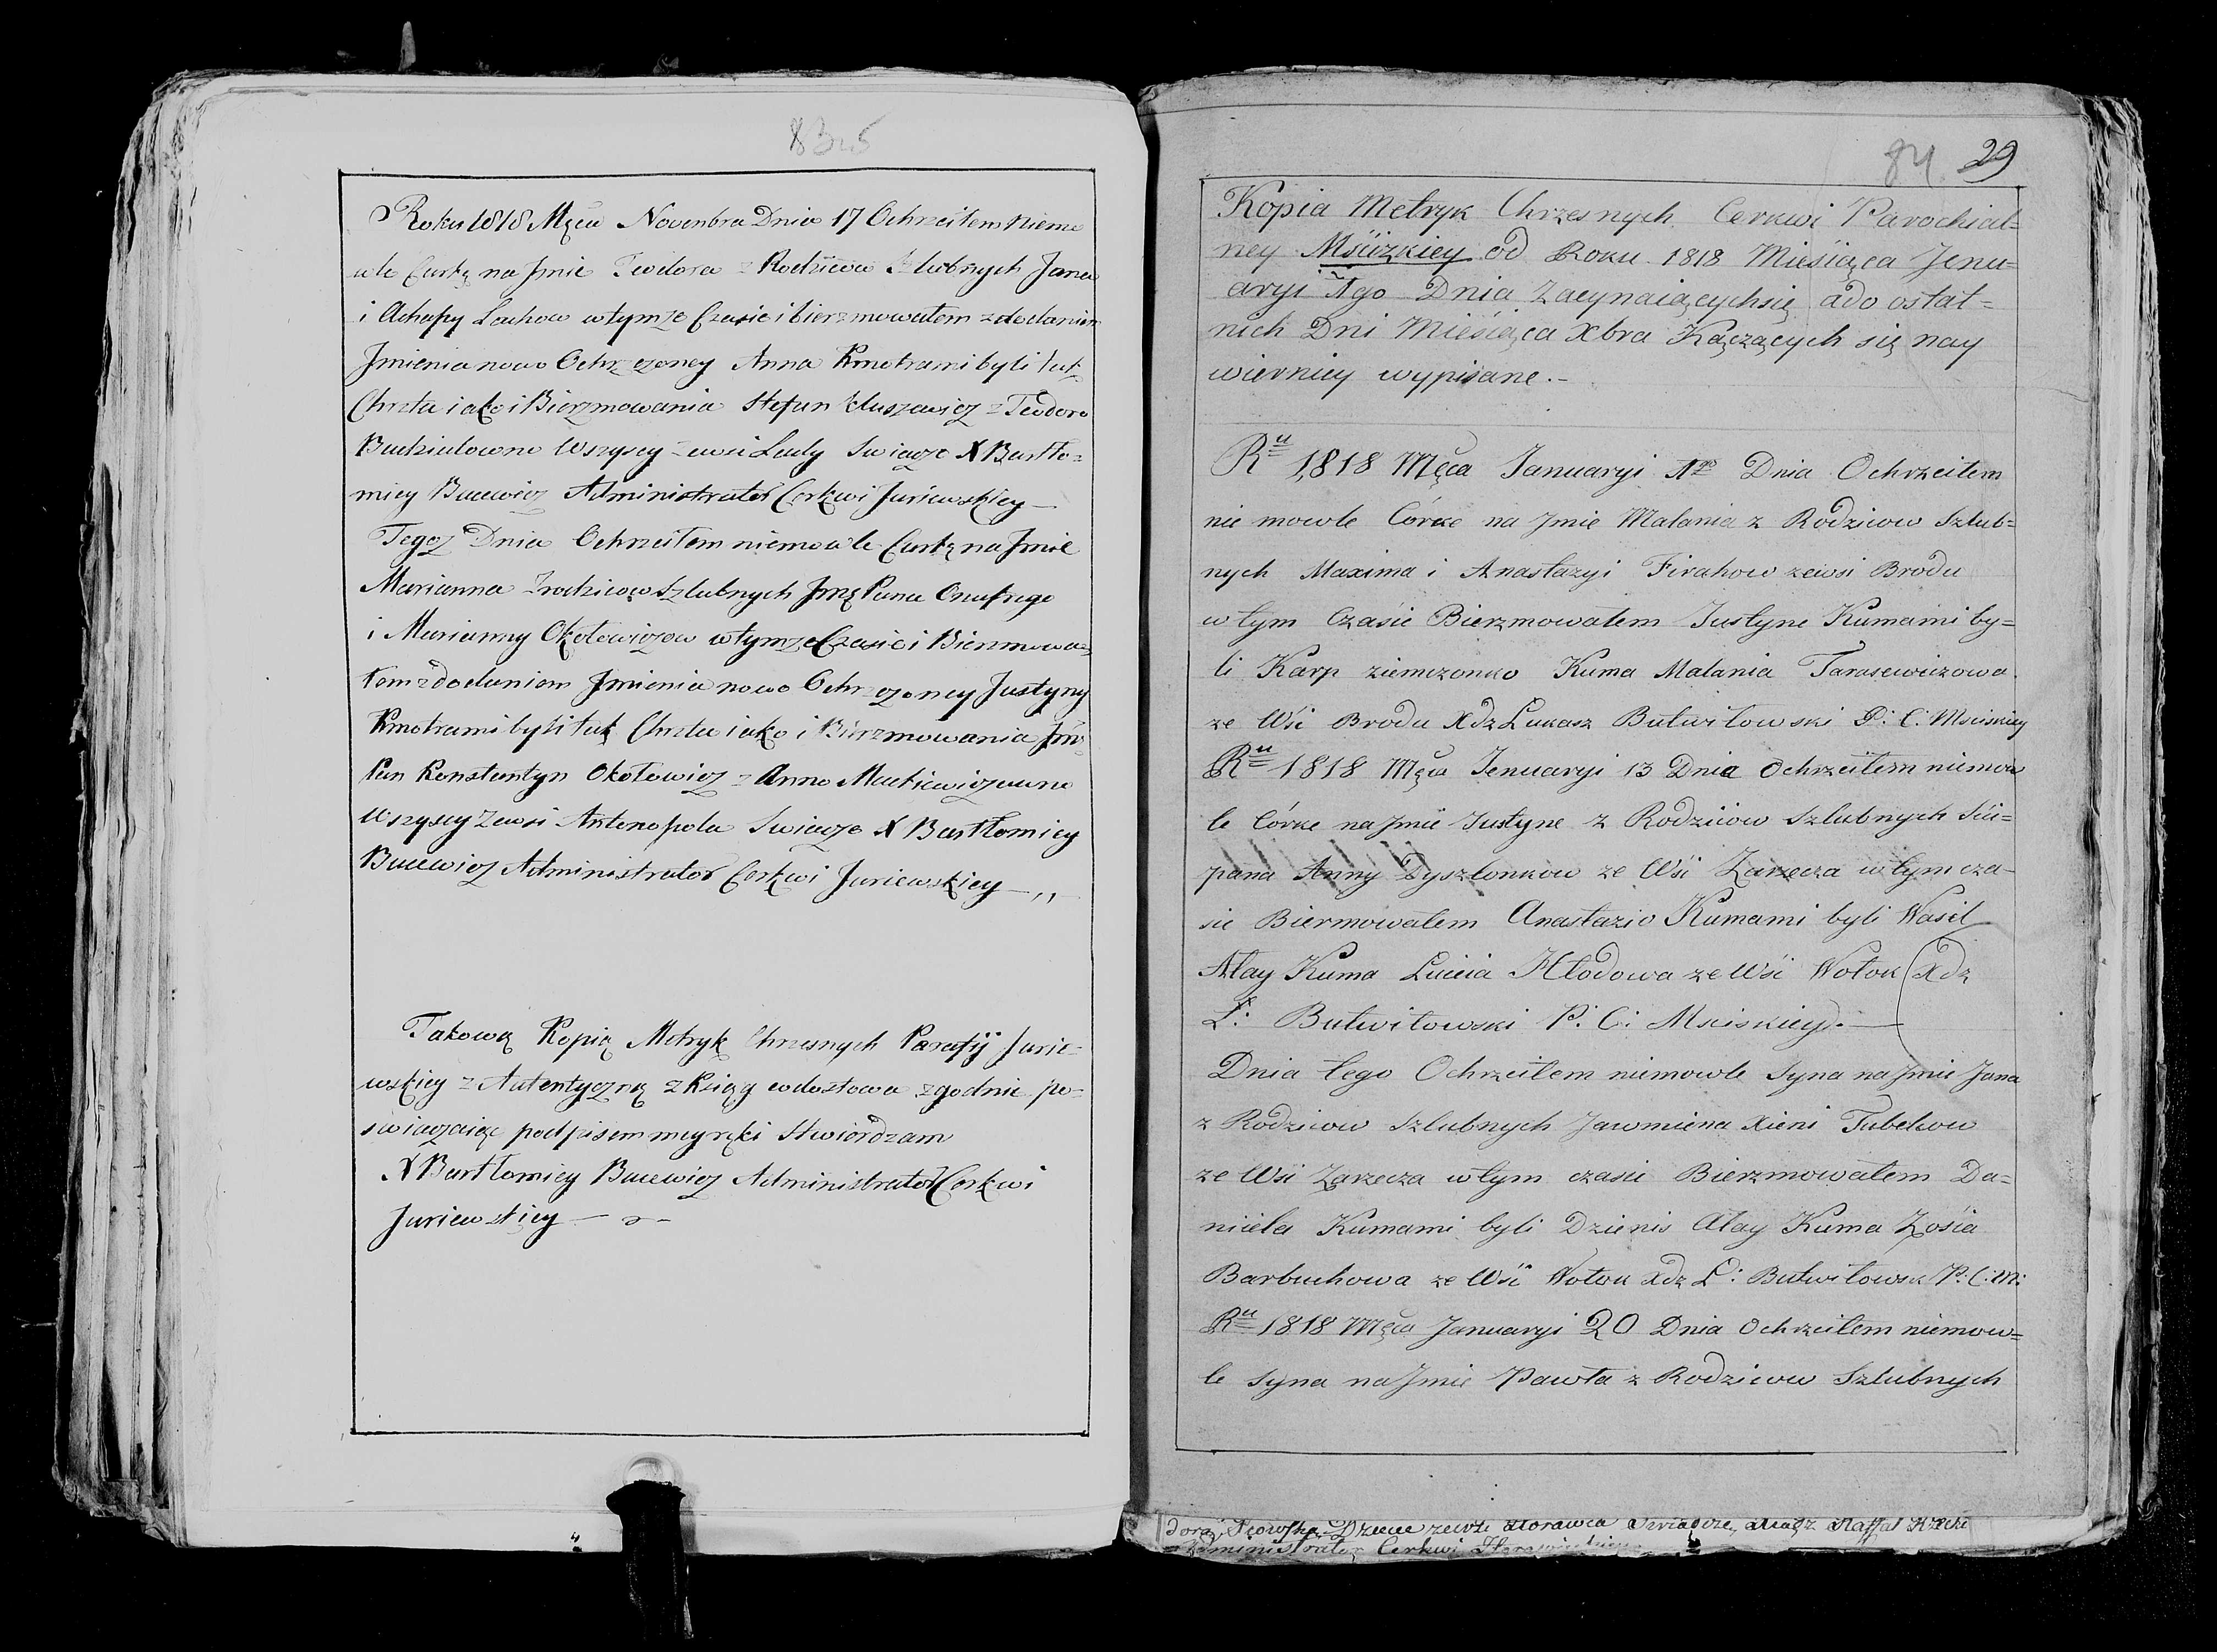 83 25
Roku 1818 Męca Novenbra Dnia 17 Ochrzciłem Niemo
wle Curkę na Jmie Teodora z Rodziców Szlubnych Jana
i Achapy Lachow wtymże Czasie i bierzmowałem z dodaniem
Jmienia nowo Ochrzczoney Anna Kmotrami byli tak
Chrztu iako i Bierzmowania Stefan Kluszewicz z Teodoro
Budziulowno Wszyscy zewsi Lady Swiadzo X Bartło=
miey Bucewicz Administrator Cerkwi Juriewskiey —
Tegoz Dnia Ochrzciłem niemowle Curkę na Jmie
Marianna Zrodzicow Szlubnych Jmę Pana Onufrego
i Marianny Okołowiczow wtymze Czasie i Bierzmowa=
łem z dodaniem Jmienia nowo Ochrzczoney Justyny
Kmotrami byli tak Chrztu iako i Bierzmowania Jm
Pan Konstantyn Okołowicz z Anno Mackiewiczowno
Wszyscy Zewsi Antonopola Swiadzo X Bartłomiey
Bucewicz Administrator Cerkwi Juriewskiey —,,
Takową Kopią Metryk Chrzesnych Parafij Jurie=
wskiey z Autentyczną z Księgą codosłowa zgodnie po=
swiadczaiąc podpisem mey ręki Stwierdzam
X Bartłomiey Bucewicz Administrator Cerkwi
Juriewskiey —
84 29
Kopia Metryk Chrzesnych Cerkwi Parochial=
ney Mściżkiey od Roku 1818 Miesiąca Jenu=
aryi 1go Dnia Zacynaiącychsię ado ostat=
nich Dni Miesiąca Xbra Kączących się nay
wierniey wypisane.-
Ru 1818 Męca Januaryi 1go Dnia Ochrzciłem
nie mowle Córke na Jmie Malania z Rodzicow Szlub=
nych Maxima i Anastazyi Firahow zewsi Brodu
w tym Czasie Bierzmowałem Justyne Kumami by=
li Karp ziemczonko Kuma Malania Tarasewiczowa
ze Wsi Brodu Xdz Łukasz Butwiłowski P: C: Msciskiey
Ru 1818 Męca Jenuaryi 13 Dnia Ochrzciłem niemow
le Córke na Jmie Justyne z Rodziców Szlubnych Sci=
pana Anny Dyszlonkow ze Wsi Zarzecza w tym cza-
sie Biermowałem Anastazio Kumami byli Wasil
Ałay Kuma Lucia Hłodowa ze Wsi Wołok (Xdz
Ł: Butwiłowski P: C: Msciskiey). —
Dnia tego Ochrzciłem niemowle Syna na Jmie Jana
z Rodzicow Szlubnych Jawmiena Xieni Tubekow
ze Wsi Zarzecza w tym czasie Bierzmowałem Da=
niela Kumami byli Dzienis Ałay Kuma Zosia
Barbuchowa ze Wsi Wołok Xdz Ł: Butwiłowski P: C: M:
Ru 1818 Męca Januaryi 20 Dnia Ochrzciłem niemow=
le Syna na Jmie Pawła z Rodzicow Szlubnych
zewsi Morawca Swiadcze, Xiądz Raffał
Administrator Cerkwi